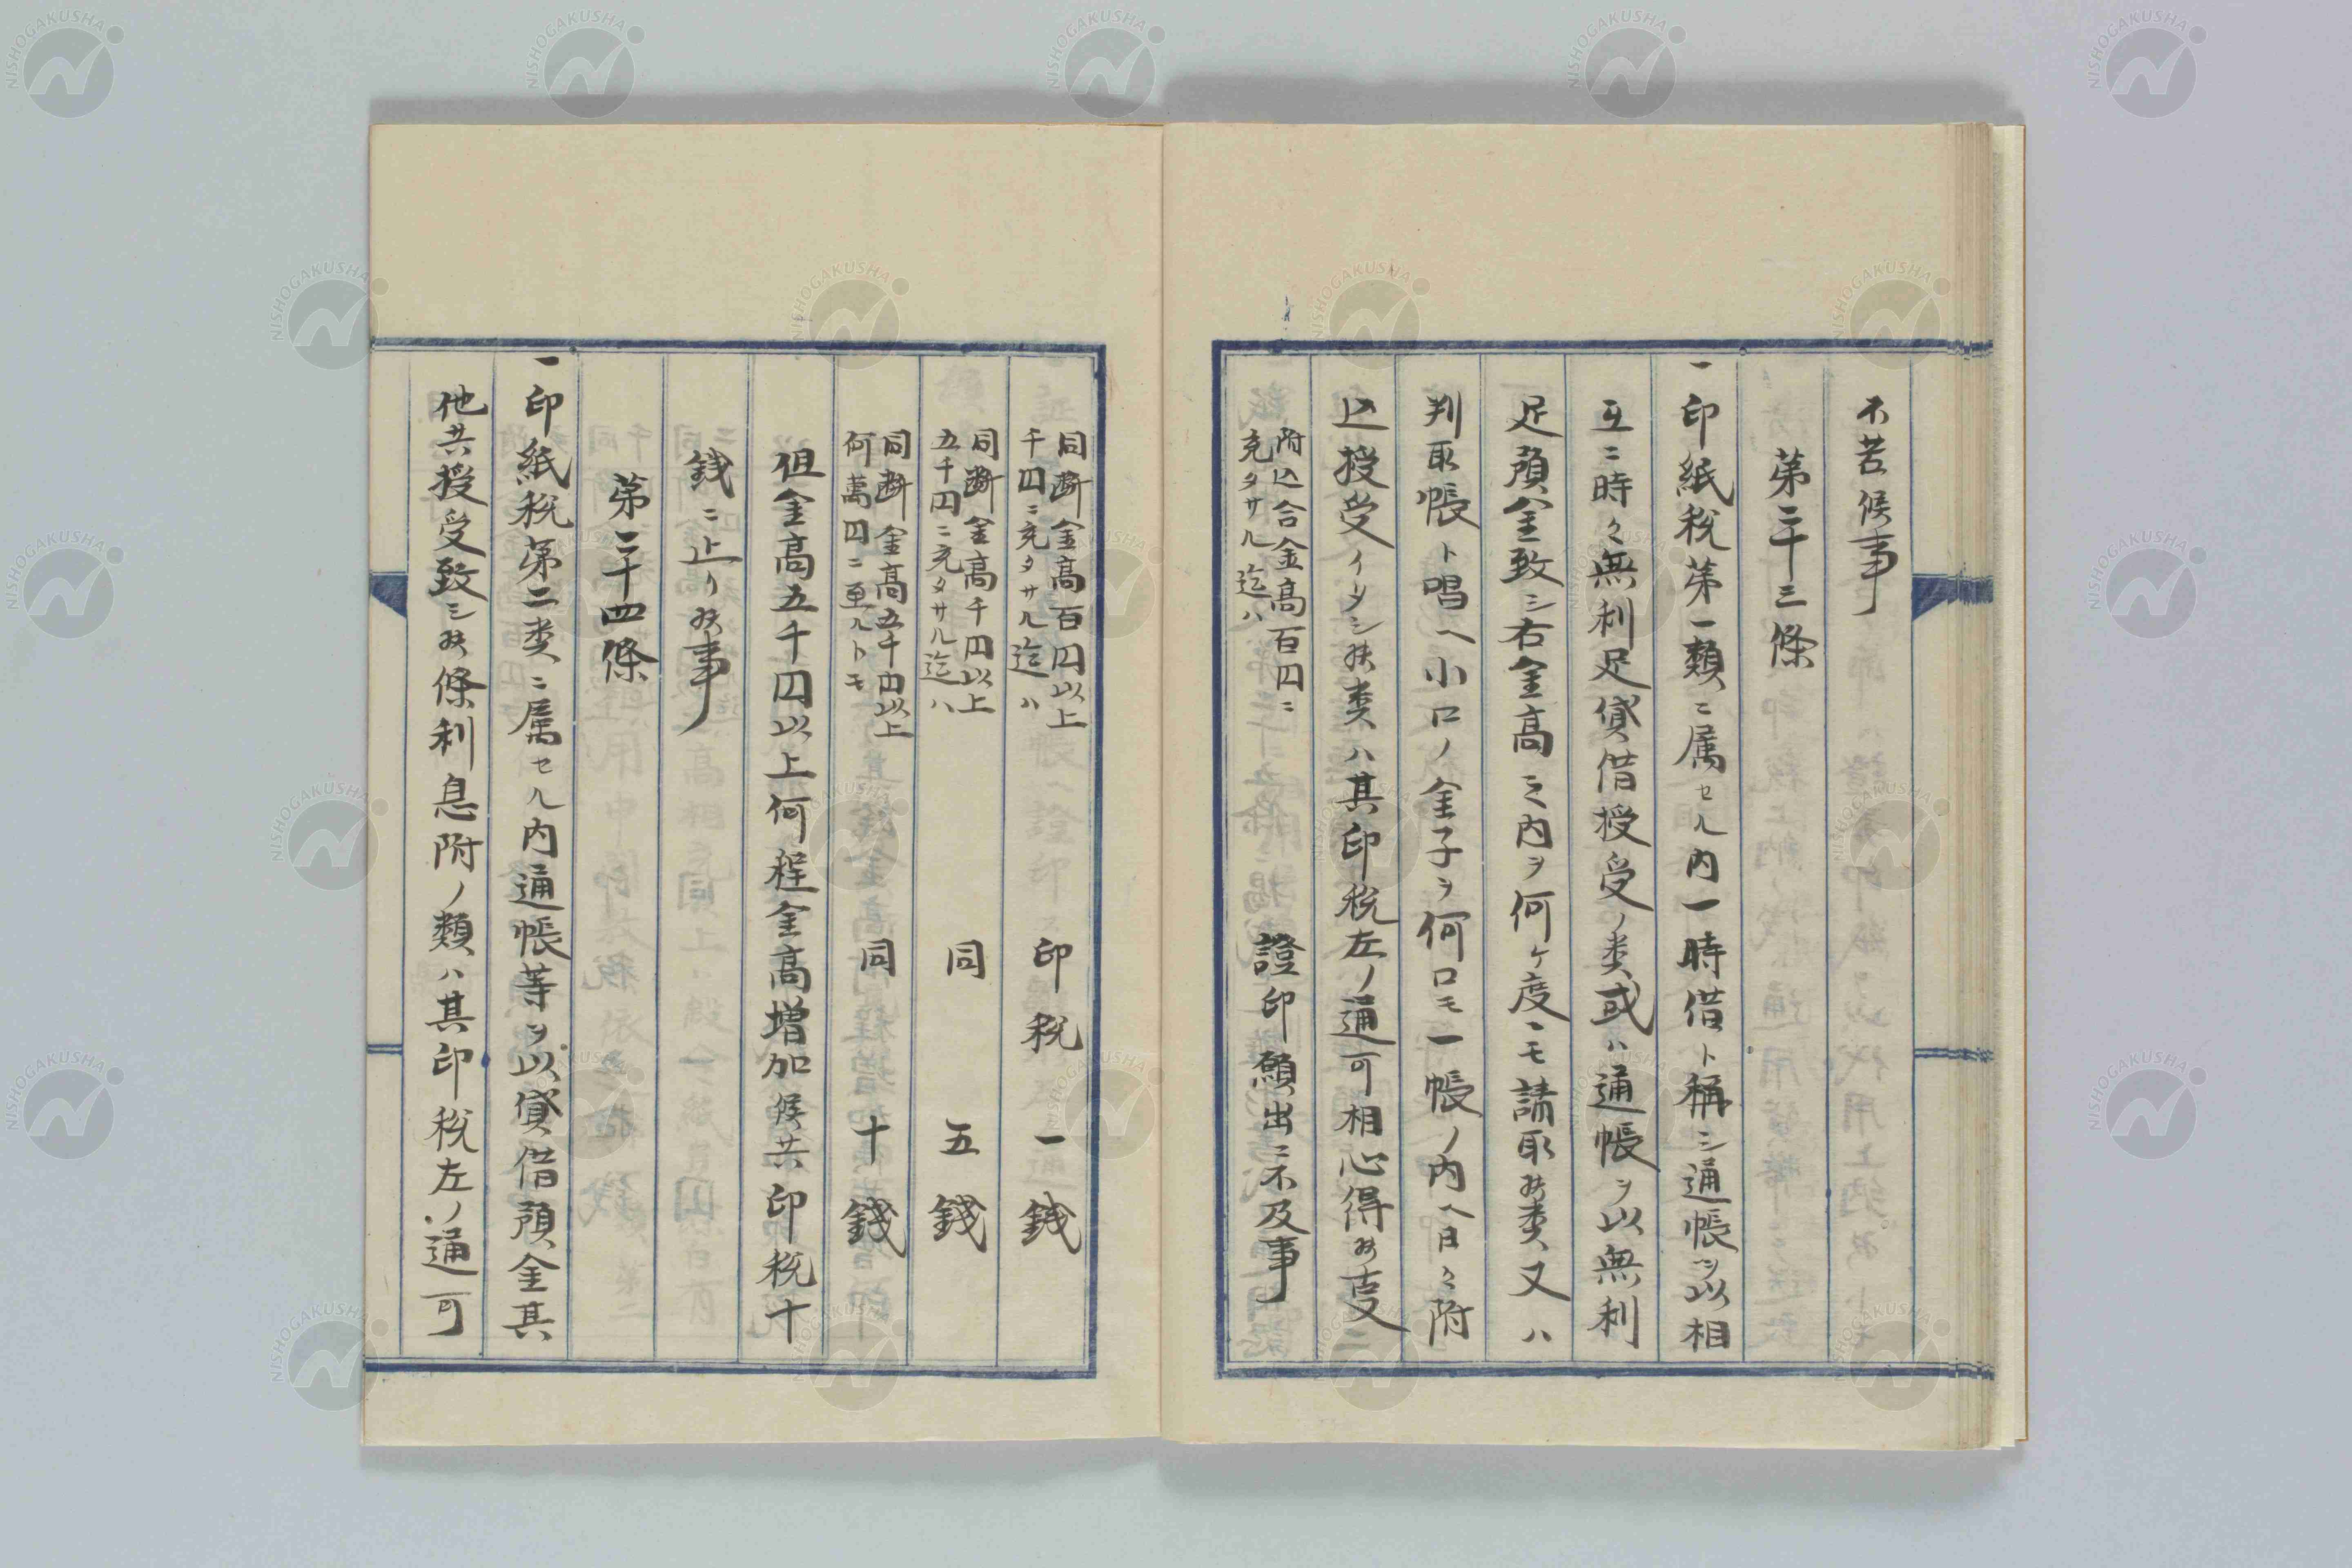 不苦候事
第二十三條
一印紙税第一類ニ属セル内一時借ト稱シ通帳ヲ以相
互ニ時々無利足貸借授受ノ类或ハ通帳ヲ以無利
足預金致シ右金高之内ヲ何ケ度ニモ請取候类又ハ
判取帳ト唱ヘ小口ノ金子ヲ何口モ一帳ノ内ヘ日々附
込授受イタシ候类ハ其印税左ノ通可相心得候叓
附込合金高百円ニ
充タサル迄ハ
證印願出ニ不及事
同断金高百円以上
千円ニ充タサル迄ハ
印税一錢
同断金高千円以上
五千円ニ充タサル迄ハ
同五錢
同断金高五千円以上
何萬円ニ至ルトモ
同十錢
但金高五千円以上何程金高増加候共印税十
錢ニ止リ候事
第二十四條
一印紙税第二类ニ属セル内通帳等ヲ以貸借預金其
他共授受致シ候條利息附ノ類ハ其印税左ノ通可
NISHOGAKUSHA